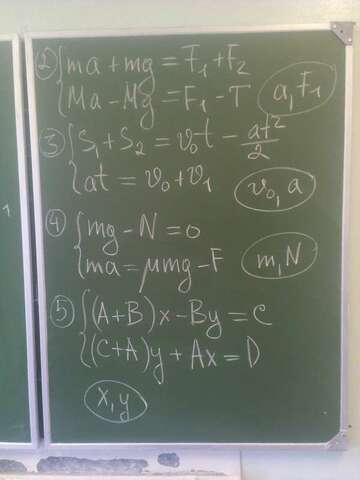 ② { ma + mg = F₁ + F₂
Ma - Mg = F₁ - T
a, F₁
③ { S₁ + S₂ = v₀t - at²/2
at = v₀ + v₁
v₀, a
④ { mg - N = 0
ma = μmg - F
m, N
⑤ { (A + B)x - By = C
(C + A)y + Ax = D
x, y
1